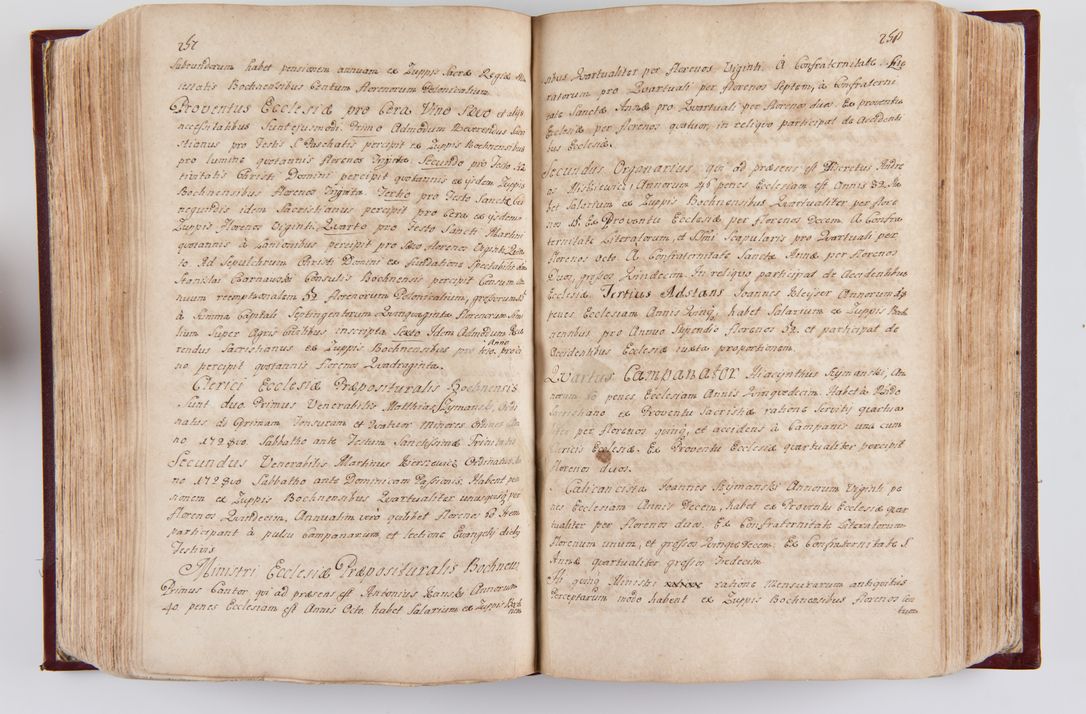 257
Subrundorum habet pensionem annuam ex Zuppis Sacræ Regiæ Ma
iestatis Bochnensibus Centum florenorum Polonicalium.
Proventus Ecclesiæ pro Cera Vino Sevo et alijs
necessitatibus Sunt ejusmodi. Primo Admodum Reverendus Sacri
stianus pro Festis S. Paschatis percipit ex Zuppis Bochnensibus
pro lumine quotannis florenos Triginta. Secundo pro Festo Na
tivitatis Christi Domini percipit quotannis ex ijsdem Zuppis
Bochnensibus florenos Triginta. Tertio pro Festo Sanctæ
negundis idem Sacristianus percipit pro Cera ex ijsdem
Zuppis florenos Viginti. Quarto pro Festo Sancti Martini
quotannis à Lanionibus percipit pro Sevo florenos Viginti. Quin
to Ad Sepulchrum Christi Domini ex fundatione Spectabilis
Stanislai Czarnawski Consulis Bochnensis percipit Censum an
nuum reemptionalem 52 florenorum Polonicalium, grossorum 15
à Summa Capitali Septingentorum Quinquaginta florenorum
lium Super Agris Civilibus inscripta. Sexto Idem Admodum Reve
rendus Sacristianus ex Zuppis Bochnensibus pro Anno
no percipit quotannis florenos Quadraginta.
Clerici Ecclesiæ Præposituralis Bochnensis
Sunt duo. Primus Venerabilis Matthias Szymanski, Ordi
natus ad Primam Tonsuram et Quatuor Minores Ordines An
no 1728vo. Sabbatho ante Festum Sanctissimæ Trinitatis
Secundus Venerabilis Martinus Ordinatus An
no 1728vo Sabbatho ante Dominicam Passionis. Habent pen
sionem ex Zuppis Bochnensibus Quartualiter unusquisque per
florenos Quindecim. Annuatim vero quilibet florenos 60. Item
participant à pulsu Campanarum, et lectione Evangely diebus
Festivis
Ministri Ecclesiæ Præposituralis Bochnen:
Primus Cantor qui ad præsens est Antonius Annorum
40 penes Ecclesiam est Annis Octo, habet Salarium ex Zuppis Boch
nen
258
sibus, Quartualiter per florenos Viginti. A Confraternitate Lite
ratorum pro Quartuali per florenos Septem, à Confraterni
tate Sanctæ Annæ pro Quartuali per florenos duos. Ex proventu
Ecclesiæ per florenos quatuor, in reliquo participat de Accidenti
bus Ecclesiæ.
Secundus Organarius qui ad præsens est Discretus Andre
as Miskiewicz Annorum 46 penes Ecclesiam est Annis 32. Ha
bet Salarium ex Zuppis Bochnensibus Quartualiter per flore
nos Ex Proventu Ecclesiæ per florenos Decem. A Confra
ternitate Literatorum, et SSmi Scapularis pro Quartuali per
florenos octo. A Confraternitate Sanctæ Annæ per florenos
Duos, grossos Quindecim. In reliquo participat de Accidentibus
Ecclesiæ. Tertius Adstans Joannes Kleyser Annorum
penes Ecclesiam Annis habet Salarium ex Zuppis Boch
nensibus pro Annuo Stipendio florenos 52. et participat de
Accidentibus Ecclesiæ iuxta proportionem.
Quartus Campanator Hiacynthus Szymanski, An
norum 50 penes Ecclesiam Annis Quinquedecim. Habet à Reverendo
Sacristiano ex Proventu Sacristiæ ratione Servity quartua
liter per florenos quinq, et accidens à Campanis una cum
Clericis Ecclesiæ. Ex Proventu Ecclesiæ quartualiter percipit
florenos duos.
Calicancista Joannes Szymanski Annorum Viginti pe
nes Ecclesiam Annis Decem, habet ex Proventu Ecclesiæ quar
tualiter per florenos duos. Ex Confraternitate Literatorum
florenum unum, et grossos Quinquedecem. Ex Confraternitate S.
Annæ quartualiter grossos Tredecim.
Hi quinq Ministri ratione Mensurarum antiquitus
Perceptarum modo habent ex Zuppis Bochnensibus florenos Cen
tum